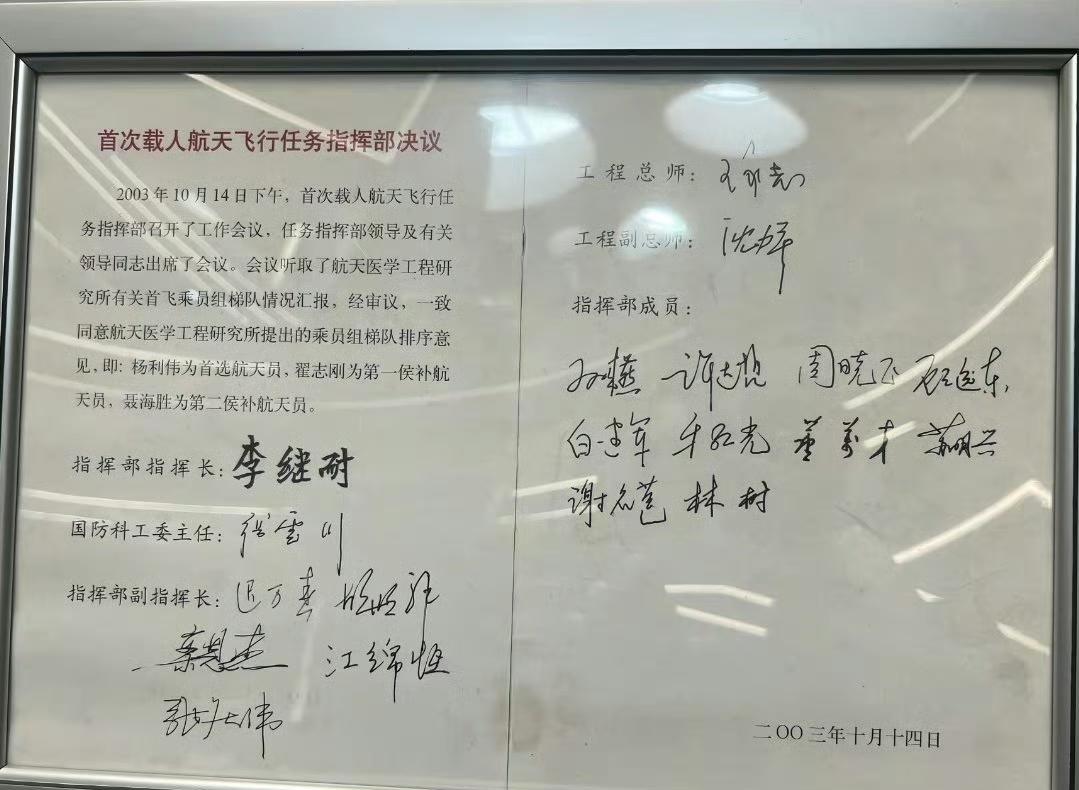 首次载人航天飞行任务指挥部决议
2003年10月14日下午，首次载人航天飞行任
务指挥部召开了工作会议，任务指挥部领导及有关
领导同志出席了会议。会议听取了航天医学工程研
究所有关首飞乘员组梯队情况汇报，经审议，一致
同意航天医学工程研究所提出的乘员组梯队排序意
见，即：杨利伟为首选航天员，翟志刚为第一侯补航
天员，聂海胜为第二侯补航天员。
指挥部指挥长：李继耐
国防科工委主任：张云川
指挥部副指挥长：迟万春 胡世祥
江绵恒
张庆伟
工程总师：王永志
工程副总师：沈力平
指挥部成员：
许达哲 周晓飞 顾逸东
白建军 牛红光 董万才 苏明兴
谢名苞 林树
二〇〇三年十月十四日